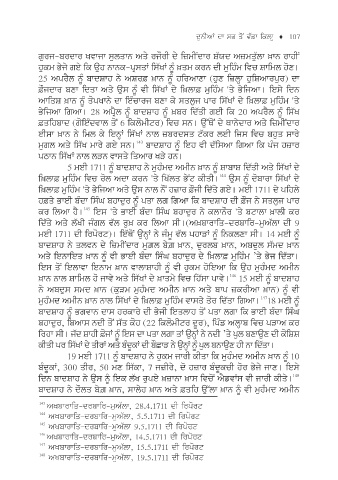 ਦੁਨੀਆਂ ਦਾ ਸਭ ਤੋਂ ਵੱਡਾ ਕਿਲਾ ♦ 107
ਗੁਰਜ-ਬਰਦਾਰ ਖਵਾਜਾ ਸੁਲਤਾਨ ਅਤੇ ਰਜੌਰੀ ਦੇ ਜ਼ਿਮੀਂਦਾਰ ਸ਼ੱਯਦ ਅਜ਼ਮਤੁੱਲਾ ਖ਼ਾਨ ਰਾਹੀਂ
ਹੁਕਮ ਭੇਜੇ ਗਏ ਕਿ ਉਹ ਨਾਨਕ-ਪ੍ਰਸਤਾਂ ਸਿੱਖਾਂ ਨੂੰ ਖ਼ਤਮ ਕਰਨ ਦੀ ਮੁਹਿੰਮ ਵਿਚ ਸ਼ਾਮਿਲ ਹੋਣ।
25 ਅਪਰੈਲ ਨੂੰ ਬਾਦਸ਼ਾਹ ਨੇ ਅਸ਼ਰਫ਼ ਖ਼ਾਨ ਨੂੰ ਹਰਿਆਣਾ (ਹੁਣ ਜ਼ਿਲ੍ਹਾ ਹੁਸ਼ਿਆਰਪੁਰ) ਦਾ
ਫ਼ੌਜਦਾਰ ਬਣਾ ਦਿਤਾ ਅਤੇ ਉਸ ਨੂੰ ਵੀ ਸਿੱਖਾਂ ਦੇ ਖ਼ਿਲਾਫ਼ ਮੁਹਿੰਮ 'ਤੇ ਭੇਜਿਆ। ਇਸੇ ਦਿਨ
ਆਤਿਸ਼ ਖ਼ਾਨ ਨੂੰ ਤੋਪਖਾਨੇ ਦਾ ਇੰਚਾਰਜ ਬਣਾ ਕੇ ਸਤਲੁਜ ਪਾਰ ਸਿੱਖਾਂ ਦੇ ਖ਼ਿਲਾਫ਼ ਮੁਹਿੰਮ 'ਤੇ
ਭੇਜਿਆ ਗਿਆ। 28 ਅਪ੍ਰੈਲ ਨੂੰ ਬਾਦਸ਼ਾਹ ਨੂੰ ਖ਼ਬਰ ਦਿੱਤੀ ਗਈ ਕਿ 20 ਅਪਰੈਲ ਨੂੰ ਸਿੱਖ
ਫ਼ਤਹਿਬਾਦ (ਗੋਇੰਦਵਾਲ ਤੋਂ 6 ਕਿਲੋਮੀਟਰ) ਵਿਚ ਸਨ। ਉੱਥੋਂ ਦੇ ਥਾਨੇਦਾਰ ਅਤੇ ਜ਼ਿਮੀਂਦਾਰ
ਈਸਾ ਖ਼ਾਨ ਨੇ ਮਿਲ ਕੇ ਇਨ੍ਹਾਂ ਸਿੱਖਾਂ ਨਾਲ ਜ਼ਬਰਦਸਤ ਟੱਕਰ ਲਈ ਜਿਸ ਵਿਚ ਬਹੁਤ ਸਾਰੇ
ਮੁਗ਼ਲ ਅਤੇ ਸਿੱਖ ਮਾਰੇ ਗਏ ਸਨ। ਬਾਦਸ਼ਾਹ ਨੂੰ ਇਹ ਵੀ ਦੱਸਿਆ ਗਿਆ ਕਿ ਪੰਜ ਹਜ਼ਾਰ
ਪਠਾਨ ਸਿੱਖਾਂ ਨਾਲ ਲੜਨ ਵਾਸਤੇ ਤਿਆਰ ਖੜੇ ਹਨ।
5 ਮਈ 1711 ਨੂੰ ਬਾਦਸ਼ਾਹ ਨੇ ਮੁਹੰਮਦ ਅਮੀਨ ਖ਼ਾਨ ਨੂੰ ਸ਼ਾਬਾਸ਼ ਦਿੱਤੀ ਅਤੇ ਸਿੱਖਾਂ ਦੇ
ਖ਼ਿਲਾਫ਼ ਮੁਹਿੰਮ ਵਿਚ ਰੋਲ ਅਦਾ ਕਰਨ 'ਤੇ ਖਿੱਲਤ ਭੇਂਟ ਕੀਤੀ। ਉਸ ਨੂੰ ਦੋਬਾਰਾ ਸਿੱਖਾਂ ਦੇ
ਖ਼ਿਲਾਫ਼ ਮੁਹਿੰਮ 'ਤੇ ਭੇਜਿਆ ਅਤੇ ਉਸ ਨਾਲ ਨੌਂ ਹਜ਼ਾਰ ਫ਼ੌਜੀ ਦਿੱਤੇ ਗਏ। ਮਈ 1711 ਦੇ ਪਹਿਲੇ
ਹਫ਼ਤੇ ਭਾਈ ਬੰਦਾ ਸਿੰਘ ਬਹਾਦੁਰ ਨੂੰ ਪਤਾ ਲਗ ਗਿਆ ਕਿ ਬਾਦਸ਼ਾਹ ਦੀ ਫ਼ੌਜ ਨੇ ਸਤਲੁਜ ਪਾਰ
ਕਰ ਲਿਆ ਹੈ। ਇਸ 'ਤੇ ਭਾਈ ਬੰਦਾ ਸਿੰਘ ਬਹਾਦੁਰ ਨੇ ਕਲਾਨੌਰ 'ਤੇ ਬਟਾਲਾ ਖ਼ਾਲੀ ਕਰ
ਦਿੱਤੇ ਅਤੇ ਲੱਖੀ ਜੰਗਲ ਵੱਲ ਰੁਖ਼ ਕਰ ਲਿਆ ਸੀ।(ਅਖ਼ਬਾਰਾਤਿ-ਦਰਬਾਰਿ-ਮੁਅੱਲਾ ਦੀ 9
ਮਈ 1711 ਦੀ ਰਿਪੋਰਟ)। ਇੱਥੋਂ ਉਨ੍ਹਾਂ ਨੇ ਜੰਮੂ ਵੱਲ ਪਹਾੜਾਂ ਨੂੰ ਨਿਕਲਣਾ ਸੀ। 14 ਮਈ ਨੂੰ
ਬਾਦਸ਼ਾਹ ਨੇ ਤਲਵਨ ਦੇ ਜ਼ਿਮੀਂਦਾਰ ਮੁਗ਼ਲ ਬੇਗ਼ ਖ਼ਾਨ, ਦੁਰਲਬ ਖ਼ਾਨ, ਅਬਦੁਲ ਸੱਮਦ ਖ਼ਾਨ
ਅਤੇ ਇਨਾਇਤ ਖ਼ਾਨ ਨੂੰ ਵੀ ਭਾਈ ਬੰਦਾ ਸਿੰਘ ਬਹਾਦੁਰ ਦੇ ਖ਼ਿਲਾਫ਼ ਮੁਹਿੰਮ 'ਤੇ ਭੇਜ ਦਿੱਤਾ।
ਇਸ ਤੋਂ ਇਲਾਵਾ ਇਨਾਮ ਖ਼ਾਨ ਵਾਲਾਸ਼ਾਹੀ ਨੂੰ ਵੀ ਹੁਕਮ ਹੋਇਆ ਕਿ ਉਹ ਮੁਹੰਮਦ ਅਮੀਨ
ਖ਼ਾਨ ਨਾਲ ਸ਼ਾਮਿਲ ਹੋ ਜਾਵੇ ਅਤੇ ਸਿੱਖਾਂ ਦੇ ਖ਼ਾਤਮੇ ਵਿਚ ਹਿੱਸਾ ਪਾਵੇ। 15 ਮਈ ਨੂੰ ਬਾਦਸ਼ਾਹ
ਨੇ ਅਬਦੁਸ ਸਮਦ ਖ਼ਾਨ (ਕੁੜਮ ਮੁਹੰਮਦ ਅਮੀਨ ਖ਼ਾਨ ਅਤੇ ਬਾਪ ਜ਼ਕਰੀਆ ਖ਼ਾਨ) ਨੂੰ ਵੀ
ਮੁਹੰਮਦ ਅਮੀਨ ਖ਼ਾਨ ਨਾਲ ਸਿੱਖਾਂ ਦੇ ਖ਼ਿਲਾਫ਼ ਮੁਹਿੰਮ ਵਾਸਤੇ ਤੋਰ ਦਿੱਤਾ ਗਿਆ। 18 ਮਈ ਨੂੰ
ਬਾਦਸ਼ਾਹ ਨੂੰ ਭਗਵਾਨ ਦਾਸ ਹਰਕਾਰੇ ਦੀ ਭੇਜੀ ਇਤਲਾਹ ਤੋਂ ਪਤਾ ਲਗਾ ਕਿ ਭਾਈ ਬੰਦਾ ਸਿੰਘ
ਬਹਾਦੁਰ, ਬਿਆਸ ਨਦੀ ਤੋਂ ਸੱਤ ਕੋਹ (22 ਕਿਲੋਮੀਟਰ ਦੂਰ), ਪਿੰਡ ਅਲਾਬ ਵਿਚ ਪੜਾਅ ਕਰ
ਰਿਹਾ ਸੀ। ਜੱਦ ਸ਼ਾਹੀ ਫ਼ੌਜਾਂ ਨੂੰ ਇਸ ਦਾ ਪਤਾ ਲਗਾ ਤਾਂ ਉਨ੍ਹਾਂ ਨੇ ਨਦੀ 'ਤੇ ਪੁਲ ਬਣਾਉਣ ਦੀ ਕੋਸ਼ਿਸ਼
ਕੀਤੀ ਪਰ ਸਿੱਖਾਂ ਦੇ ਤੀਰਾਂ ਅਤੇ ਬੰਦੂਕਾਂ ਦੀ ਬੌਛਾੜ ਨੇ ਉਨ੍ਹਾਂ ਨੂੰ ਪੁਲ ਬਨਾਉਣ ਹੀ ਨਾ ਦਿੱਤਾ।
19 ਮਈ 1711 ਨੂੰ ਬਾਦਸ਼ਾਹ ਨੇ ਹੁਕਮ ਜਾਰੀ ਕੀਤਾ ਕਿ ਮੁਹੰਮਦ ਅਮੀਨ ਖ਼ਾਨ ਨੂੰ 10
ਬੰਦੂਕਾਂ, 300 ਤੀਰ, 50 ਮਣ ਸਿੱਕਾ, 7 ਜ਼ਜ਼ੀਰੇ, ਦੋ ਹਜ਼ਾਰ ਬੰਦੂਕਚੀ ਹੋਰ ਭੇਜੇ ਜਾਣ। ਇਸੇ
ਦਿਨ ਬਾਦਸ਼ਾਹ ਨੇ ਉਸ ਨੂੰ ਇਕ ਲੱਖ ਰੁਪਏ ਖ਼ਜ਼ਾਨਾ ਖ਼ਾਸ ਵਿਚੋਂ ਐਡਵਾਂਸ ਵੀ ਜਾਰੀ ਕੀਤੇ।
ਬਾਦਸ਼ਾਹ ਨੇ ਦੌਲਤ ਬੇਗ਼ ਖ਼ਾਨ, ਸਾਲੋਹ ਖ਼ਾਨ ਅਤੇ ਫ਼ਤਹਿ ਉੱਲਾ ਖ਼ਾਨ ਨੂੰ ਵੀ ਮੁਹੰਮਦ ਅਮੀਨ
ਅਖ਼ਬਾਰਾਤਿ-ਦਰਬਾਰਿ-ਮੁਅੱਲਾ, 28.4.1711 ਦੀ ਰਿਪੋਰਟ
ਅਖ਼ਬਾਰਾਤਿ-ਦਰਬਾਰਿ-ਮੁਅੱਲਾ, 5.5.1711 ਦੀ ਰਿਪੋਰਟ
ਅਖ਼ਬਾਰਾਤਿ-ਦਰਬਾਰਿ-ਮੁਅੱਲਾ 9.5.1711 ਦੀ ਰਿਪੋਰਟ
ਅਖ਼ਬਾਰਾਤਿ-ਦਰਬਾਰਿ-ਮੁਅੱਲਾ, 14.5.1711 ਦੀ ਰਿਪੋਰਟ
ਅਖ਼ਬਾਰਾਤਿ-ਦਰਬਾਰਿ-ਮੁਅੱਲਾ, 15.5.1711 ਦੀ ਰਿਪੋਰਟ
ਅਖ਼ਬਾਰਾਤਿ-ਦਰਬਾਰਿ-ਮੁਅੱਲਾ, 19.5.1711 ਦੀ ਰਿਪੋਰਟ